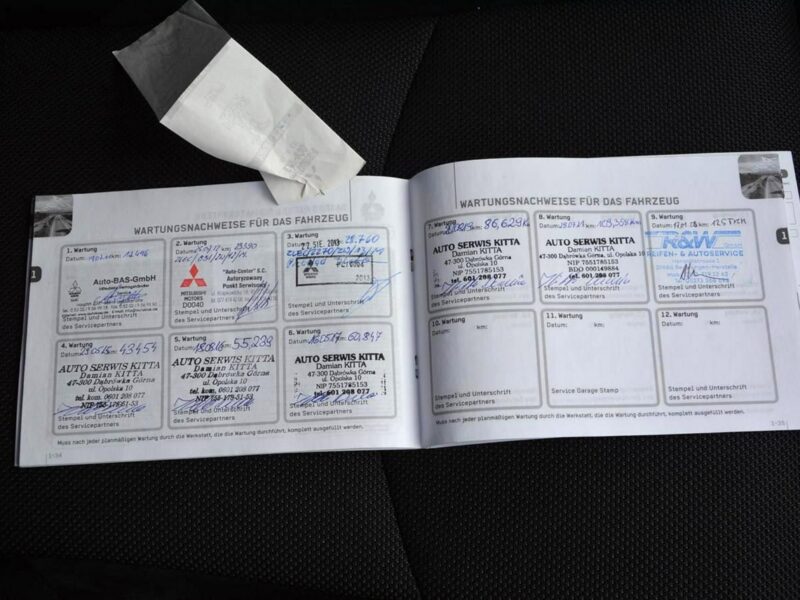 WARTUNGSNACHWEISE FÜR DAS FAHRZEUG
1. Wartung
Datum: km: 12 446
Auto-BAS-GmbH
Stempel und Unterschrift
des Servicepartners
2. Wartung
Datum: km:
MITSUBISHI
MOTORS
D0040
"Auto-Center" S.C.
Autoryzowany
Punkt Serwisowy
Stempel und Unterschrift
des Servicepartners
3. Wartung
22. SIE. 2013 28.760
2013
Stempel und Unterschrift
des Servicepartners
4. Wartung
Datum: km: 43454
AUTO SERWIS KITTA
Damian KITTA
47-300 Dąbrówka Górna
ul. Opolska 10
tel. kom. 0601 208 077
Stempel und Unterschrift
des Servicepartners
5. Wartung
Datum: km: 55,233
AUTO SERWIS KITTA
Damian KITTA
47-300 Dąbrówka Górna
ul. Opolska 10
tel. kom. 0601 208 077
NIP 755-179-51-53
Stempel und Unterschrift
des Servicepartners
6. Wartung
Datum: 16.05.17 km: 60,847
AUTO SERWIS KITTA
Damian KITTA
47-300 Dąbrówka Górna
ul. Opolska 10
NIP 7551785153
tel. 601 208 077
Stempel und Unterschrift
des Servicepartners
Muss nach jeder planmäßigen Wartung durch die Werkstatt, die die Wartung durchführt, komplett ausgefüllt werden.
1-34
1
WARTUNGSNACHWEISE FÜR DAS FAHRZEUG
7. Wartung
Datum: 86,629
AUTO SERWIS KITTA
Damian KITTA
47-300 Dąbrówka Górna
ul. Opolska 10
NIP 7551785153
tel. 601 208 077
Stempel und Unterschrift
des Servicepartners
8. Wartung
Datum: km:
AUTO SERWIS KITTA
Damian KITTA
47-300 Dąbrówka Górna
ul. Opolska 10
NIP 7551785153
BDO 000149884
tel. 601 208 077
Stempel und Unterschrift
des Servicepartners
9. Wartung
Datum: km:
R&W
GmbH
REIFEN- & AUTOSERVICE
Stempel und Unterschrift
des Servicepartners
10. Wartung
Datum: km:
Stempel und Unterschrift
des Servicepartners
11. Wartung
Datum: km:
Service Garage Stamp
12. Wartung
Datum: km:
Stempel und Unterschrift
des Servicepartners
Muss nach jeder planmäßigen Wartung durch die Werkstatt, die die Wartung durchführt, komplett ausgefüllt werden.
1-35
1